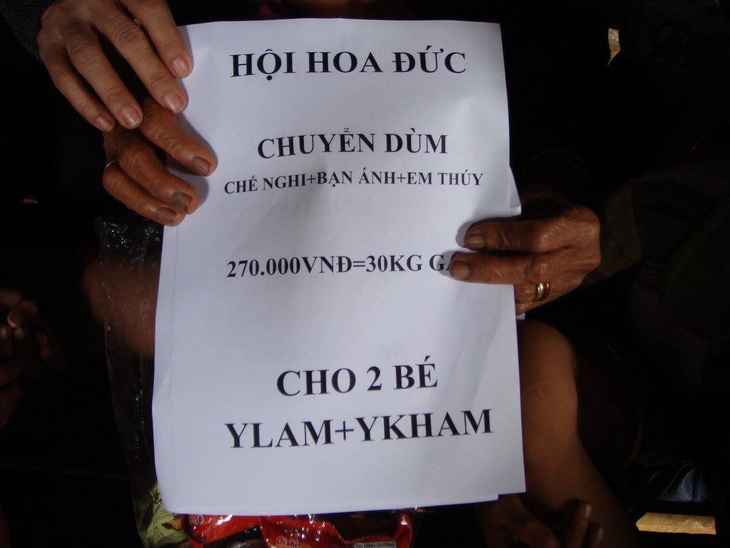 HỘI HOA ĐỨC
CHUYỂN DÙM
CHẾ NGHI+BẠN ÁNH+EM THÚY
270.000VNĐ=30KG
CHO 2 BÉ
YLAM+YKHAM